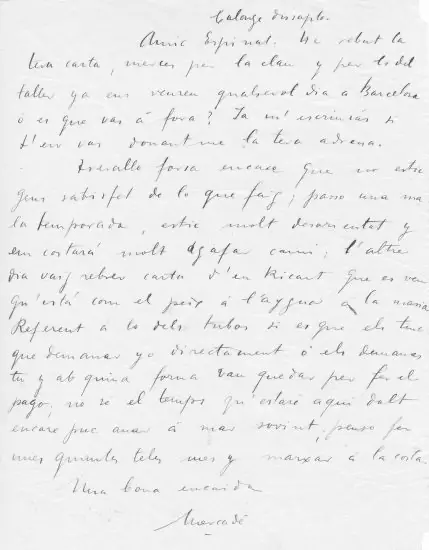 Calonge dissapte.
Amic Espinal. He rebut la
teva carta, merces per la clau y per lo del
taller ya ens veurem qualsevol dia a Barcelona
ó es que vas á fora? Ja m'escriurás si
t'en vas donantme la teva adresa.
Treballo forsa encare que no estic
gens satisfet de lo que faig; passo una ma
la temporada, estic molt desorientat y
em costará molt agafar cami; l'altre
dia vaig rebrer carta d'en Ricart que es veu
qu'está com el peix á l'aygua á la masia
Referent a lo dels tubos si es que els tinc
que demanar yo directament ó els demanas
tu y ab quina forma van quedar per fer el
pago, no se el temps qu'estaré aqui dalt
encare puc anar á mar sovint, penso fer
unes quantes teles mes y marxar á la costa.
Una bona encaixda
Mercadé